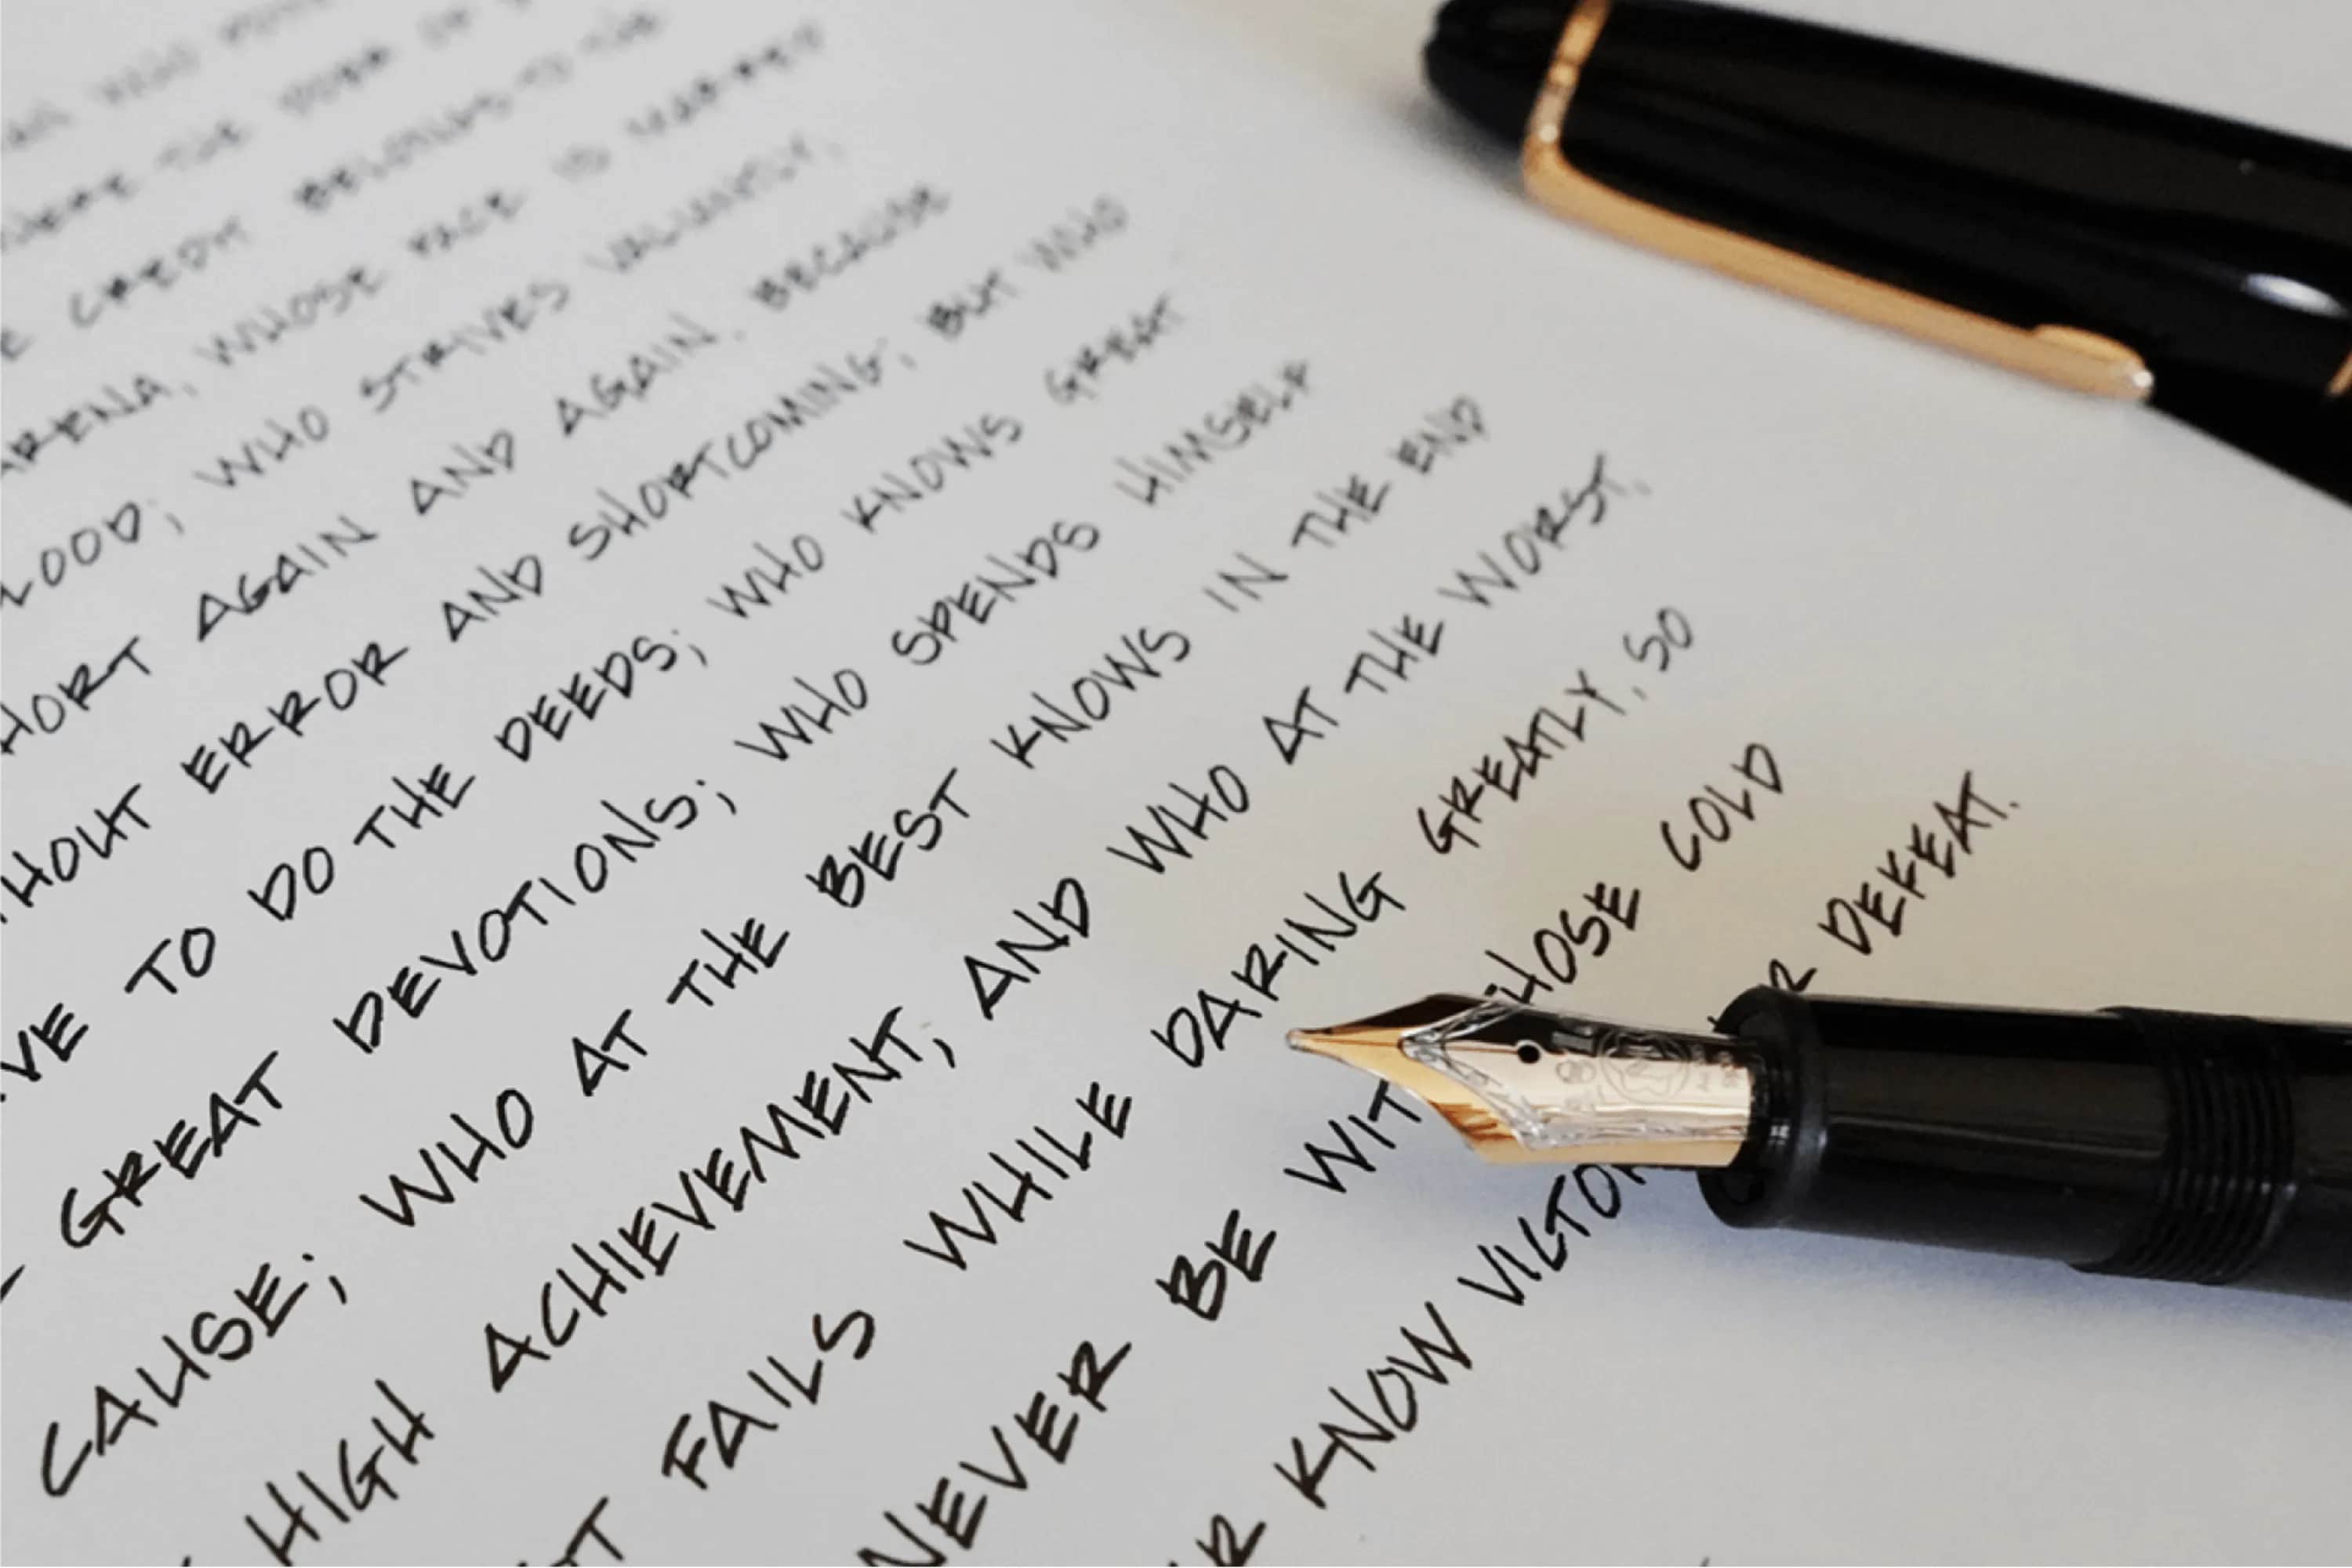 WHO
THE DOER OF
CREDIT BELONGS TO THE
ARENA, WHOSE FACE IS MARRED
LOOD; WHO STRIVES VALIANTLY,
HORT AGAIN AND AGAIN, BECAUSE
THOUT ERROR AND SHORTCOMING; BUT WHO
VE TO DO THE DEEDS; WHO KNOWS GREAT
GREAT DEVOTIONS; WHO SPENDS HIMSELF
CAUSE; WHO AT THE BEST KNOWS IN THE END
HIGH ACHIEVEMENT, AND WHO AT THE WORST,
T FAILS WHILE DARING GREATLY, SO
NEVER BE WIT HOSE COLD
R KNOW VICTOR R DEFEAT.